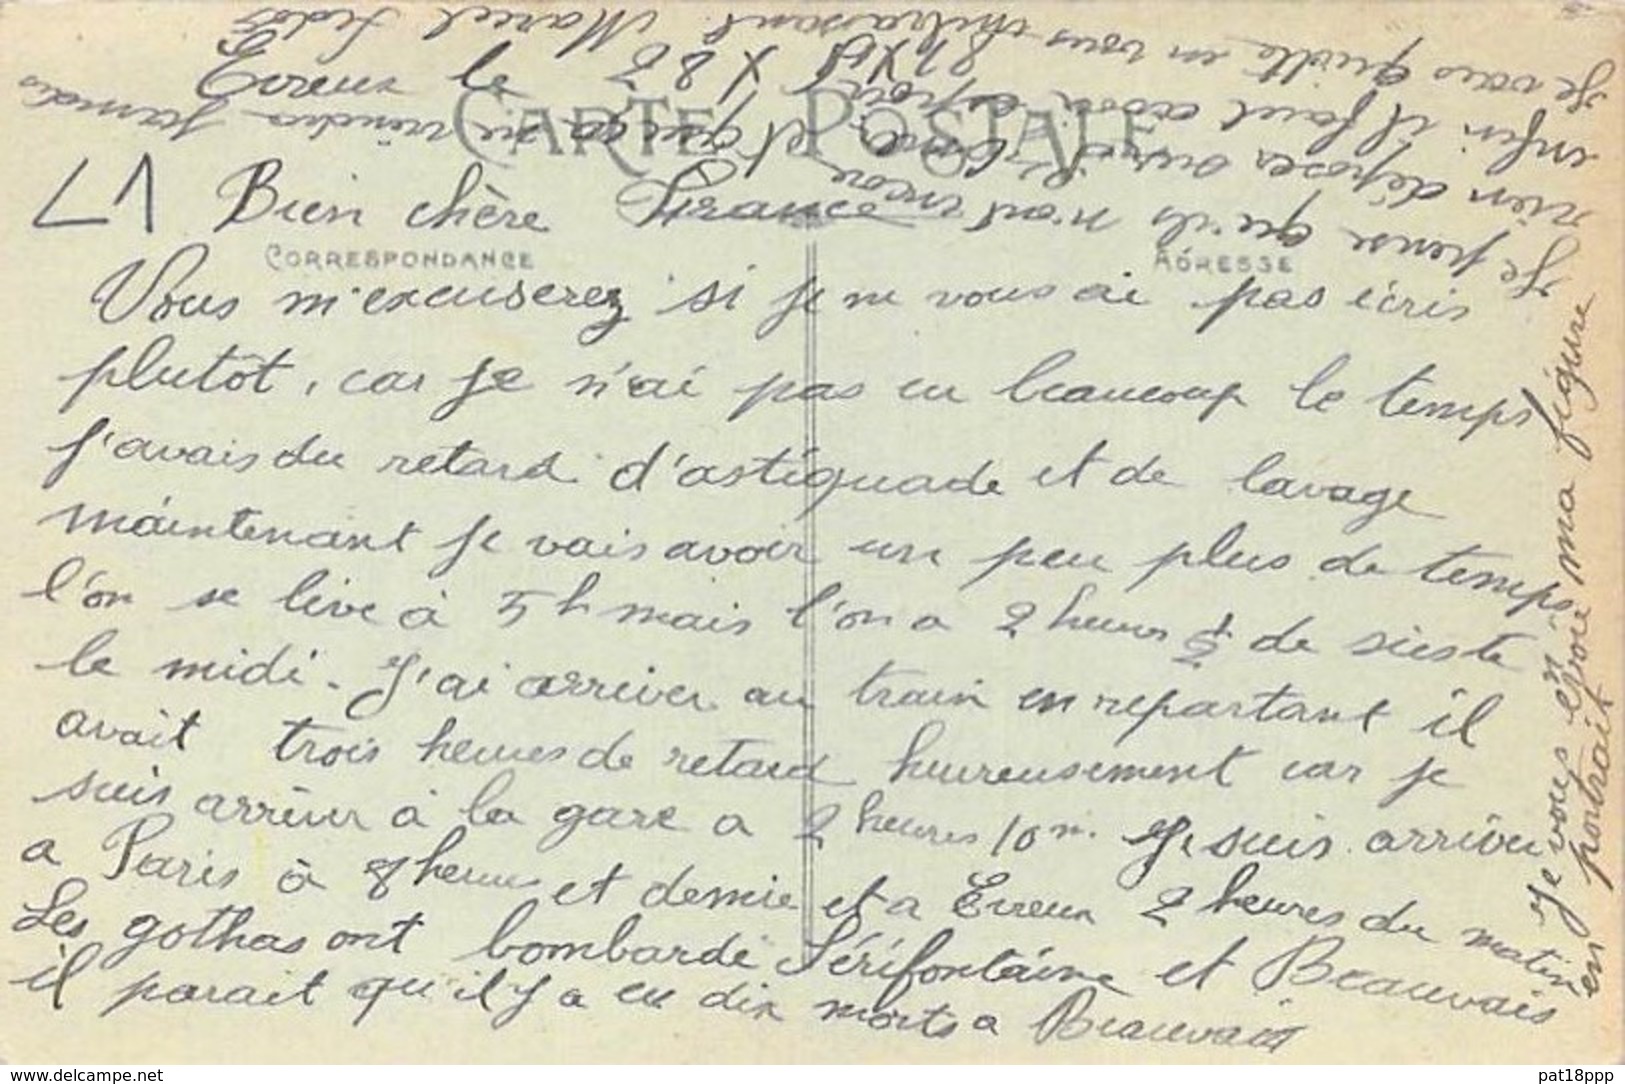 Evreux le
CARTE POSTALE
Bien chère France
CORRESPONDANCE
ADRESSE
Vous m'excuserez si je ne vous ai pas écris
plutôt, car je n'ai pas eu beaucoup le temps
j'avais du retard d'astiquade et de lavage
maintenant je vais avoir un peu plus de temps
l'on se lève à 5 h mais l'on a 2 heures ½ de sieste
le midi. J'ai arriver au train en repartant il
avait trois heures de retard heureusement car je
suis arriver à la gare a 2 heures 10 m. Je suis arriver
a Paris à 8 heures et demie et a Evreux 2 heures du matin
Les gothas ont bombardé Sérifontaine et Beauvais
il parait qu'il y a eu dix morts a Beauvais
Je vous en envoie ma figure
en portrait
Je pense qu'ils n'ont encore
rien déposer sur et que ça ne viendra jamais
enfin il faut avoir espoir
Je vous quitte en vous embrassant. Marcel
pat18ppp